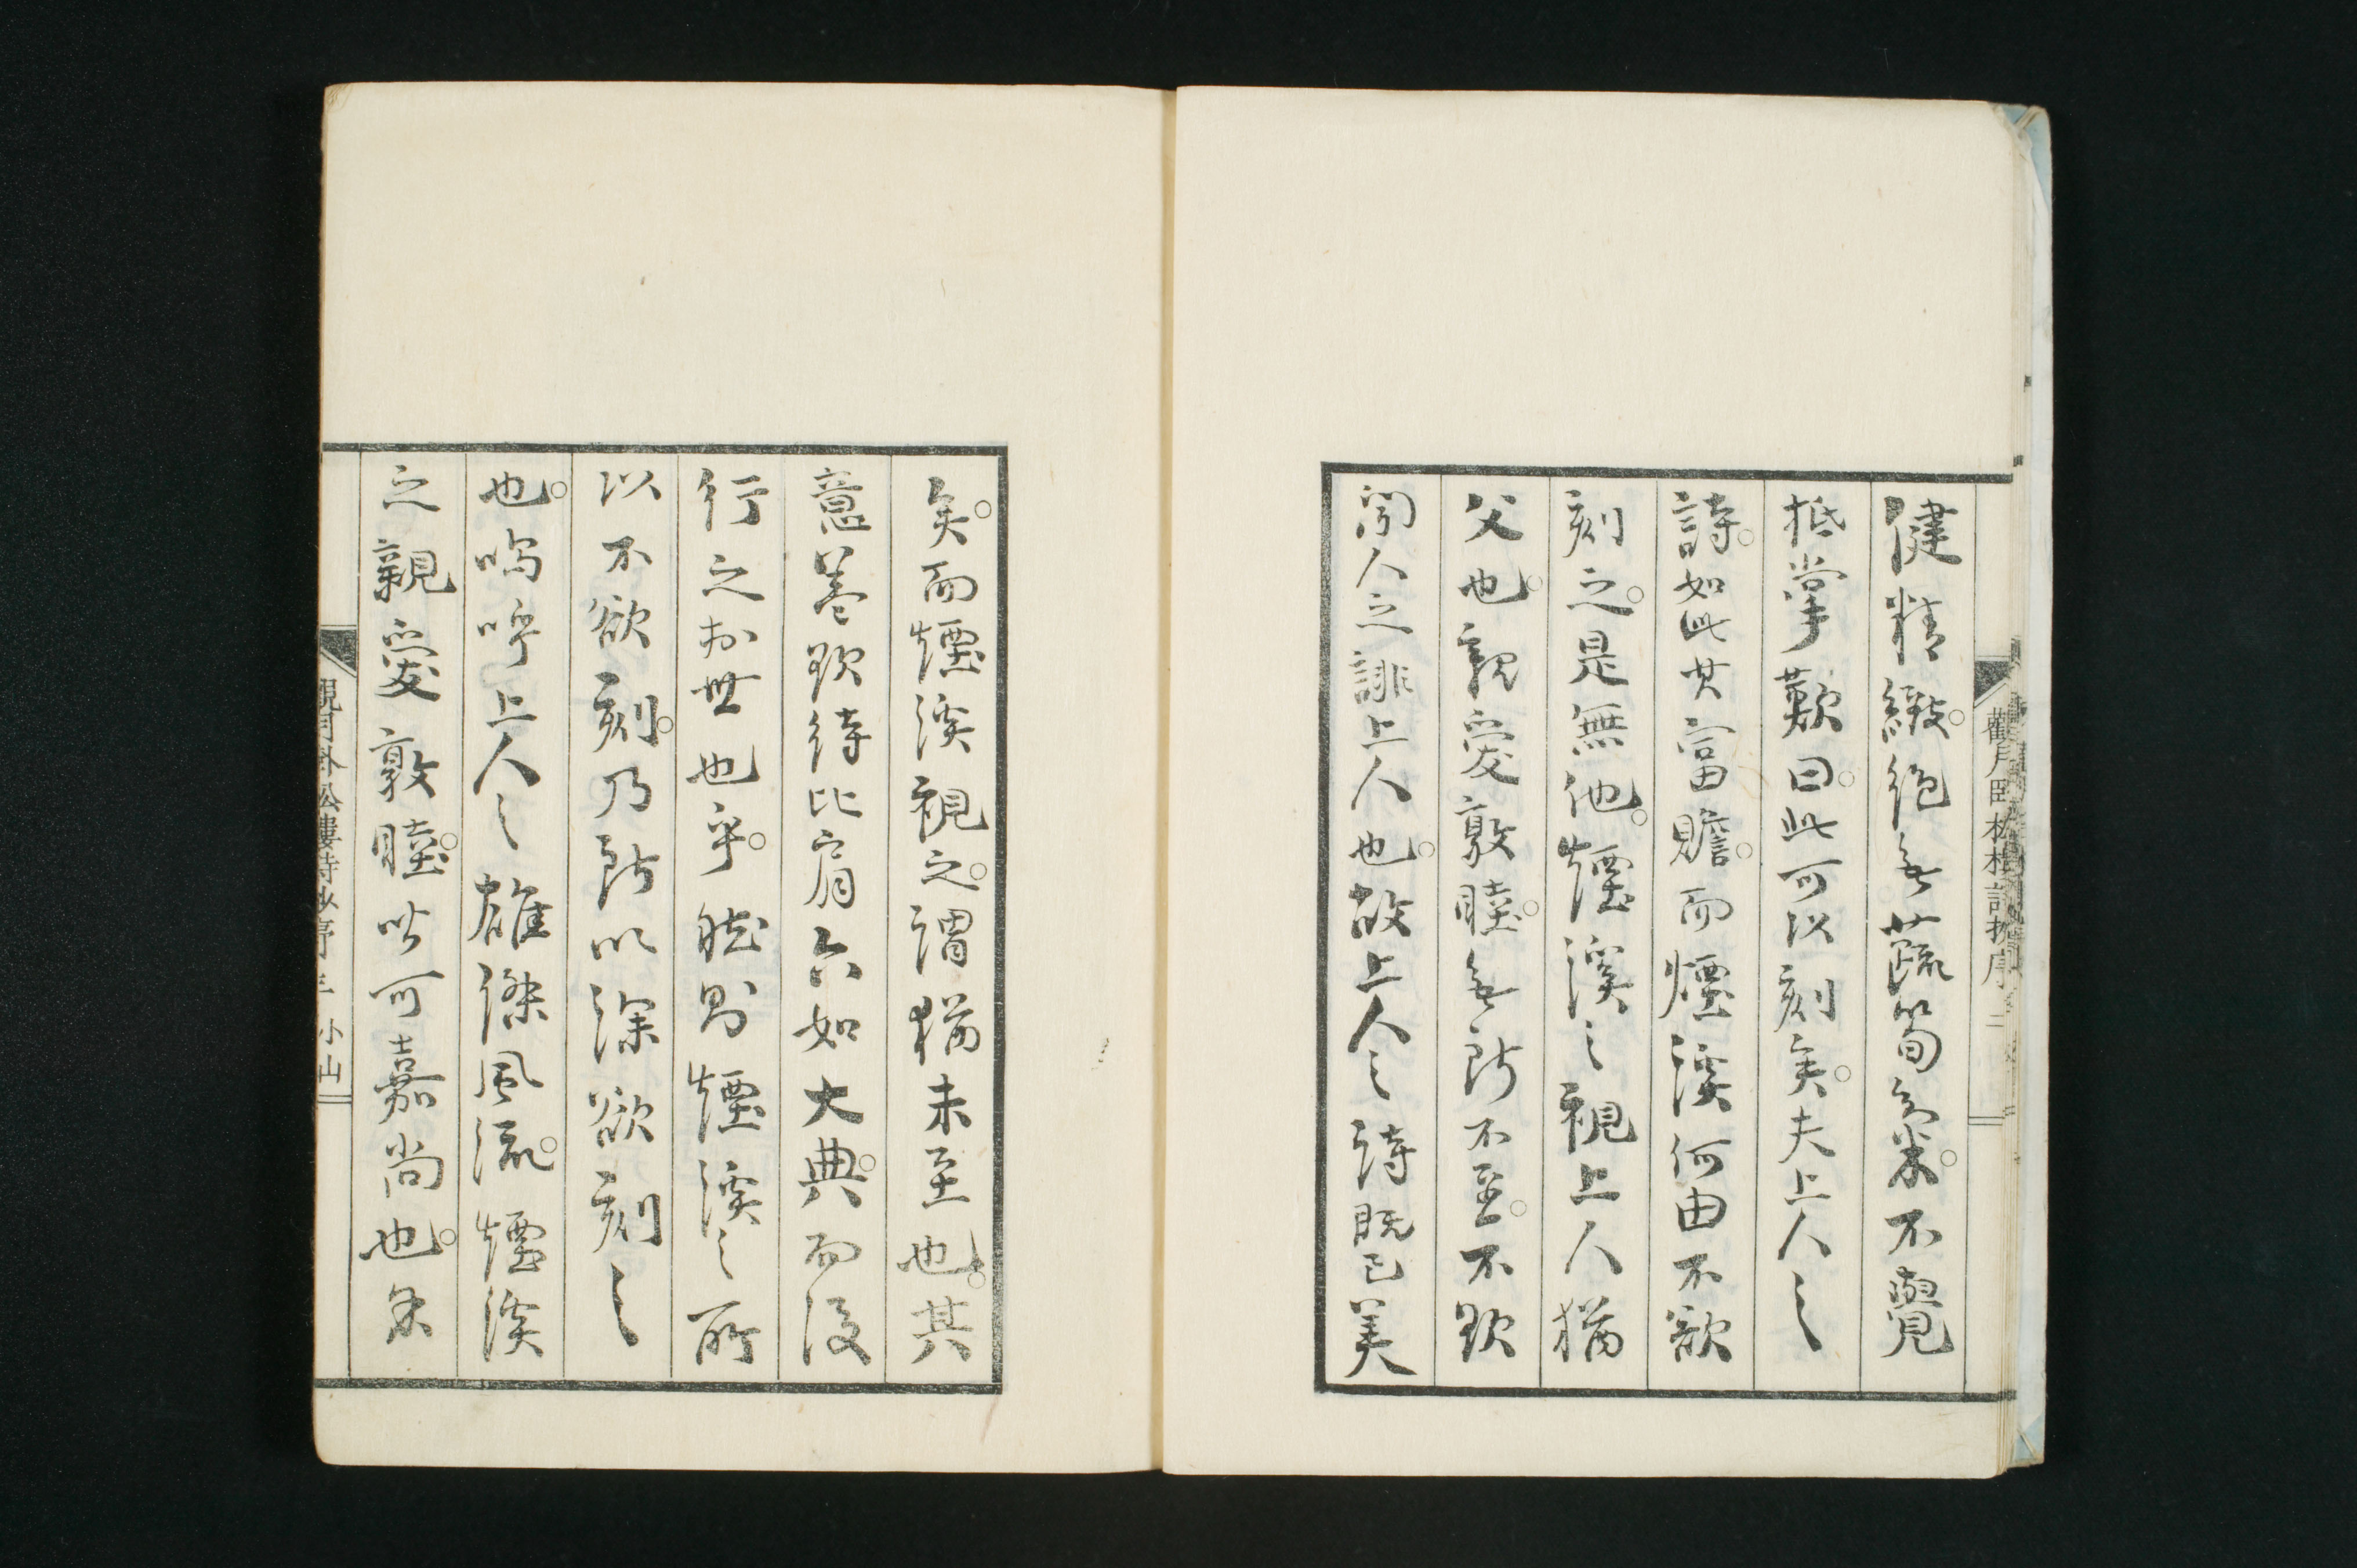 觀月臥松樓詩抄序 二
健精緻。絕無蔬筍氣。不覺
抵掌歎曰。此可以刻矣。夫上人之
詩。如此其富贍。而煙溪何由不欲
刻之。是無他。煙溪之視上人猶
父也。親愛敦睦。無所不至。不欲
聞人之誹上人也。故上人之詩既已美
矣。而煙溪視之。謂猶未至也。其
意蓋欲待比肩六如大典。而後
行之於世也乎。然則煙溪之所
以不欲刻。乃所以深欲刻之
也。嗚呼上人之雄傑風流。煙溪
之親愛敦睦。皆可嘉尚也。余
觀月臥松樓詩抄序 三 小山